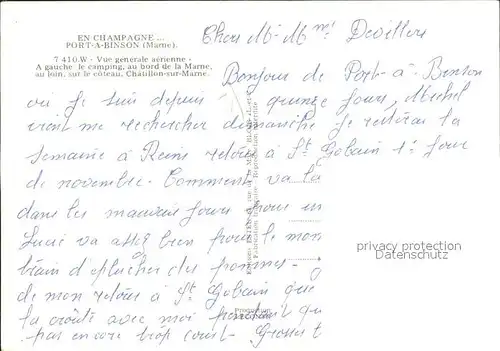 EN CHAMPAGNE ...
PORT-A-BINSON (Marne).
7 410.W - Vue générale aérienne -
A gauche le camping, au bord de la Marne,
au loin, sur le côteau, Châtillon-sur-Marne.
Chers M. Mme Devillers
Bonjour de Port-à-Binson
où je suis depuis quinze jours, Michel
vient me rechercher dimanche je resterai la
semaine à Reims retour à St Gobain 1er jour
de novembre. Comment va la
dans les mauvais jours pour un
Lucie va assez bien pour le mom
train d'éplucher des pommes-
de mon retour à St Gobain que
la croûte avec moi pendant qu
pas encore trop court Grosses t
privacy protection
Datenschutz